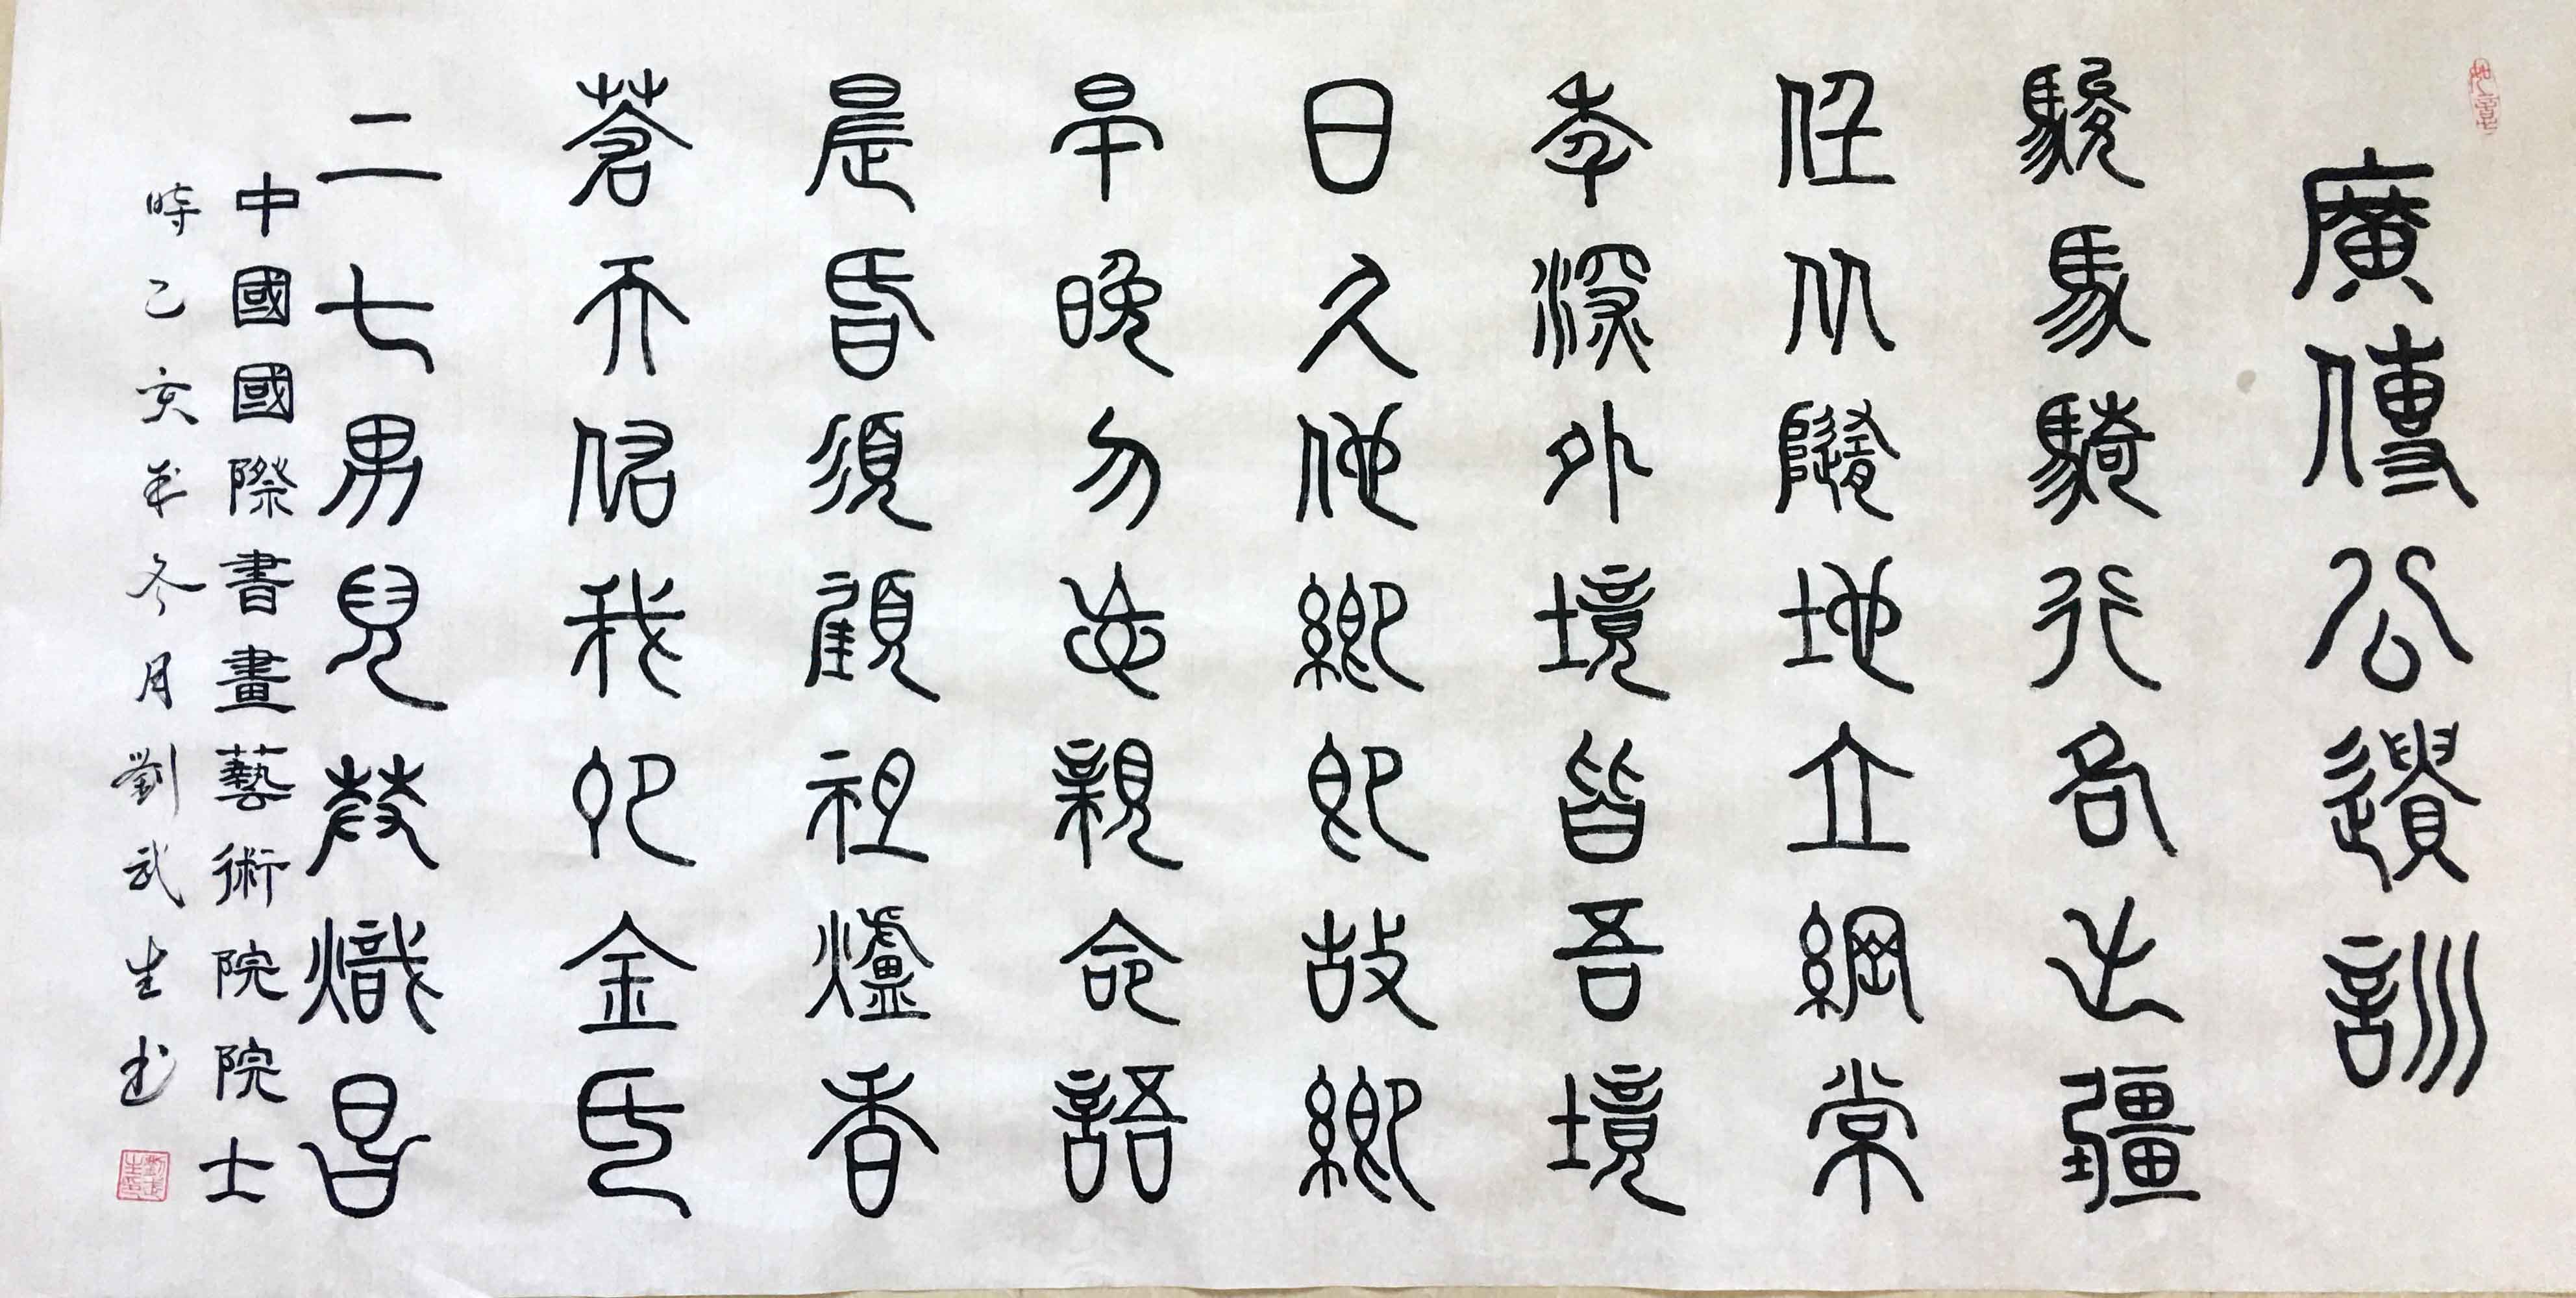 廣傳公遺訓
駿馬騎行各出疆
任从隨地立綱常
年深外境皆吾境
日久他鄉即故鄉
早晚勿忘親命語
晨昏須顧祖爐香
蒼天佑我卯金氏
二七男兒發熾昌
中國國際書畫藝術院院士
時己亥年冬月劉武生书
如意
劉武生印